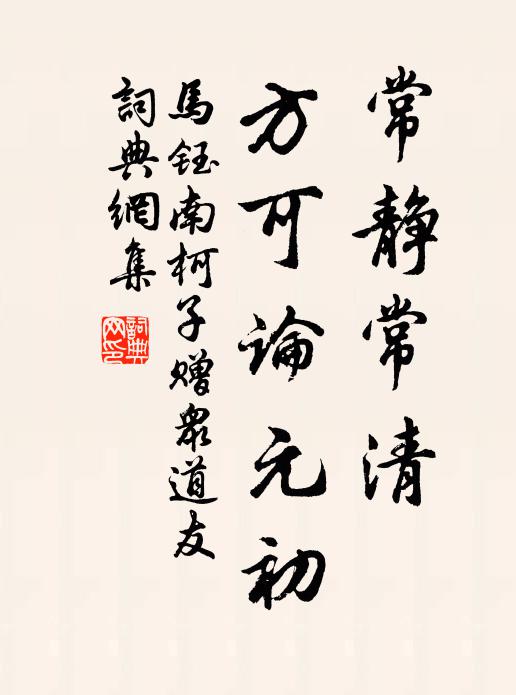 常靜常清
方可論元初
馬鈺南柯子贈衆道友
詞典網集
詞典网印